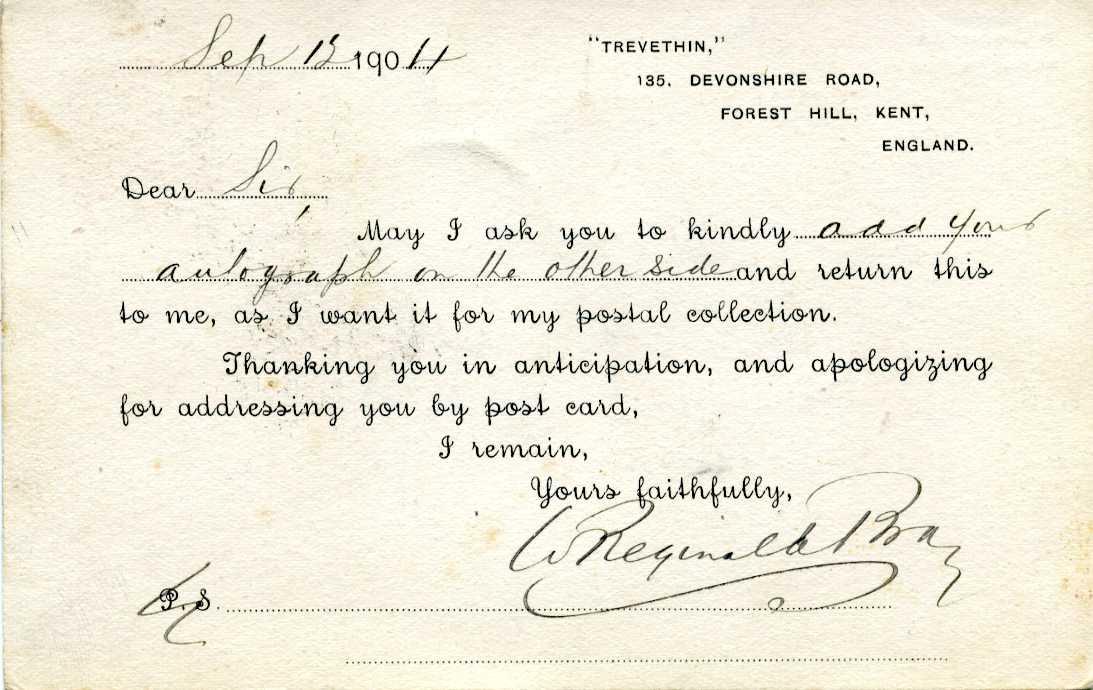 Sep 13 1904
"TREVETHIN,"
135, DEVONSHIRE ROAD,
FOREST HILL, KENT,
ENGLAND.
Dear Sir,
May I ask you to kindly add your
autograph on the other side and return this
to me, as I want it for my postal collection.
Thanking you in anticipation, and apologizing
for addressing you by post card,
I remain,
Yours faithfully,
W Reginald Bray
P.S.